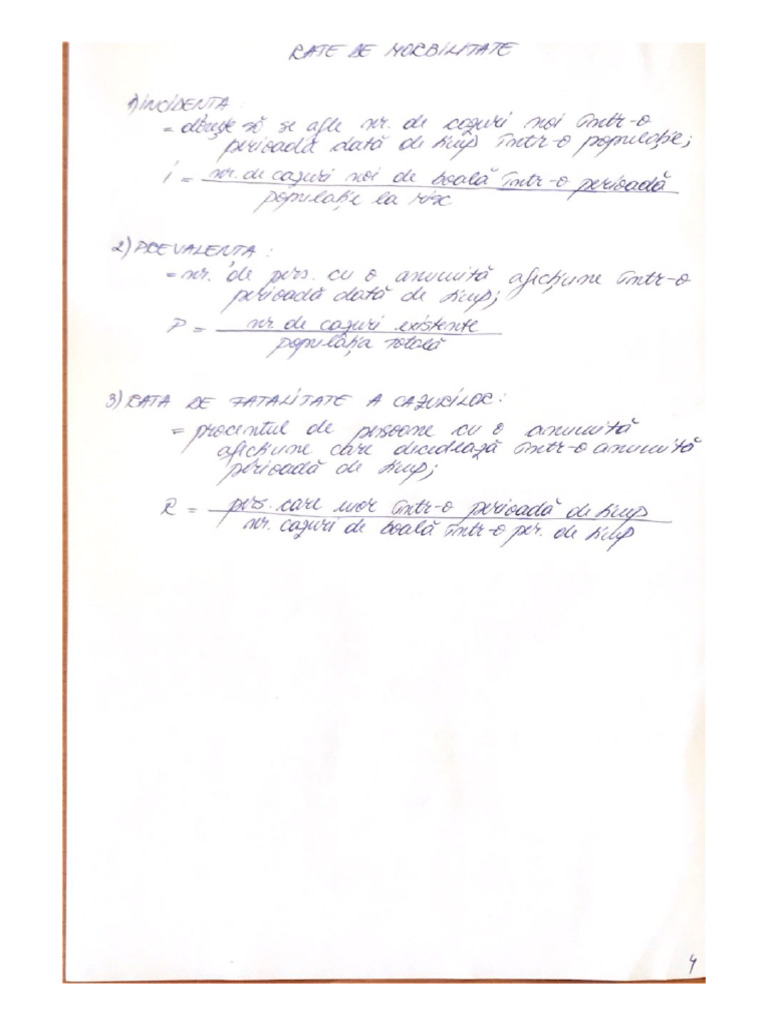 RATE DE MORBILITATE
1) INCIDENTA :
= dorește să se afle nr. de cazuri noi într-o
perioadă dată de timp într-o populație;
i = nr. de cazuri noi de boală într-o perioadă
populație la risc
2) PREVALENTA :
= nr. de pers. cu o anumită afecțiune într-o
perioadă dată de timp;
P = nr. de cazuri existente
populația totală
3) RATA DE FATALITATE A CAZURILOR :
= procentul de persoane cu o anumită
afecțiune care decedează într-o anumită
perioadă de timp;
R = pers. care mor într-o perioadă de timp
nr. cazuri de boală într-o per. de timp
4